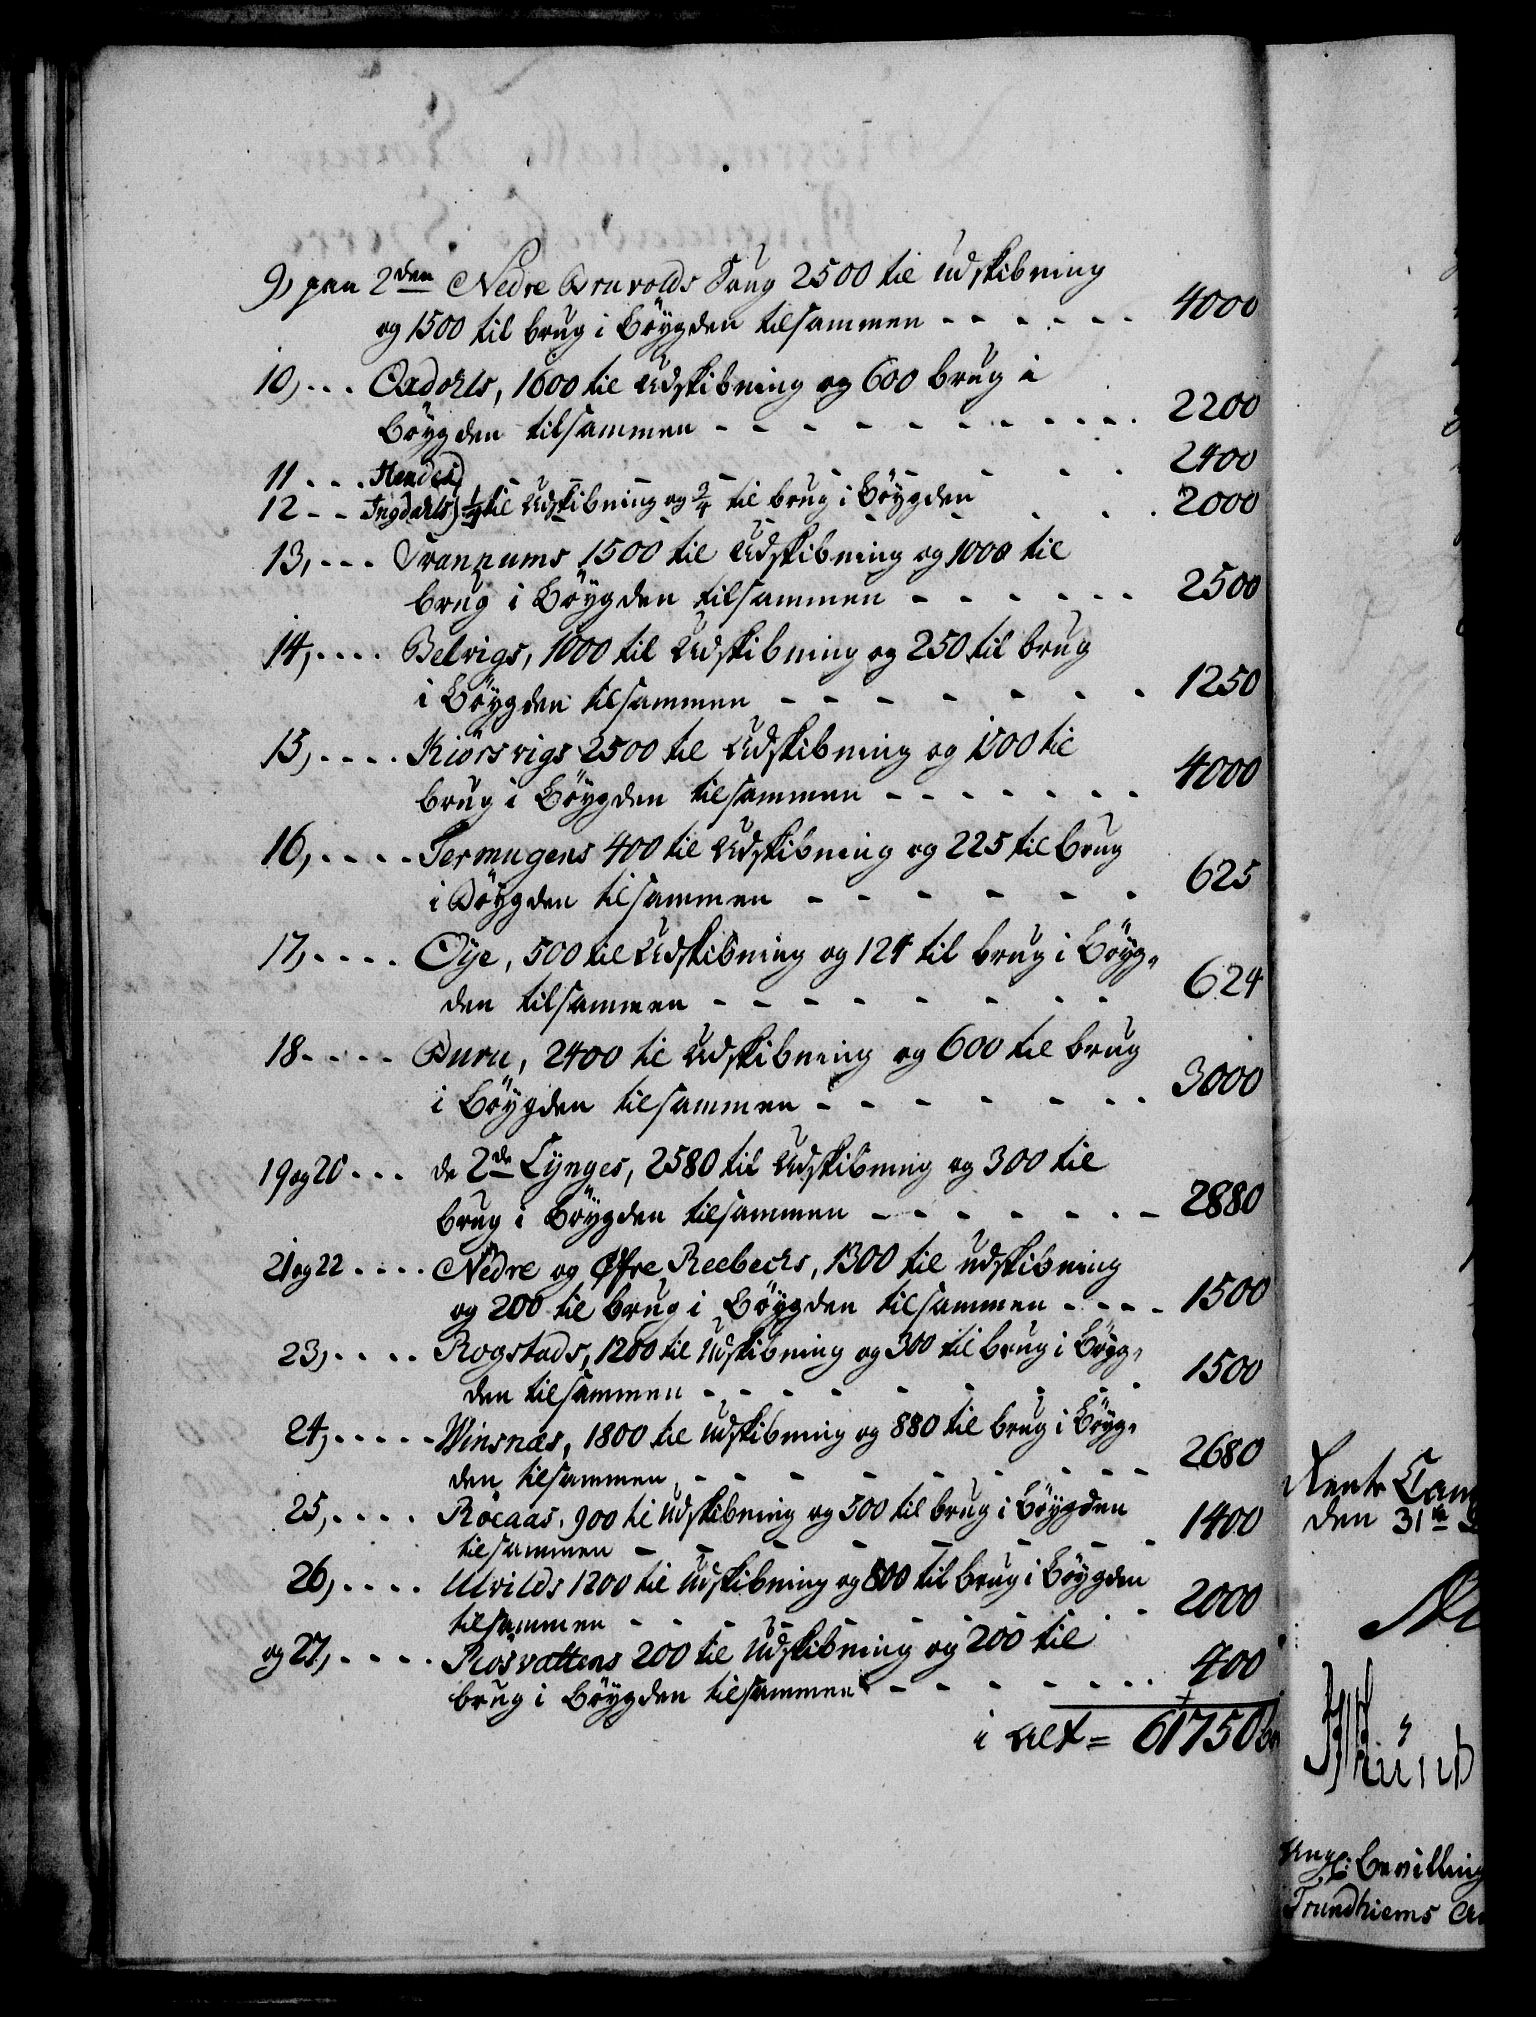 9, paa 2den Nedre Arnvolds Saug 2500 til udskibning
og 1500 til brug i Böygden tilsammen - - - - - - 4000
10, - - - Oxdohls, 1600 til Udskibning og 600 brug i
Böygden tilsammen - - - - - - - - - 2200
11 - - - - - - - - - 2400
12 - - Ingdahls til Udskibning og til brug i Böygden - - - 2000
13, - - - Trannums 1500 til Udskibning og 1000 til
brug i Böygden tilsammen - - - - - - 2500
14, - - - - Belvigs, 1000 til Udskibning og 250 til brug
i Böygden tilsammen - - - - - - - - 1250
15, - - - - Kiörsvigs 2500 til Udskibning og 1500 til
brug i Böygden tilsammen - - - - - - - 4000
16, - - - - Sermugens 400 til Udskibning og 225 til brug
i Böygden tilsammen - - - - - - - 625
17, - - - - Oye, 500 til Udskibning og 124 til brug i Böyg-
den tilsammen - - - - - - - - - 624
18 - - - - Buru, 2400 til Udskibning og 600 til brug
i Böygden tilsammen - - - - - - - 3000
19 og 20 - - - de 2de Lynges, 2580 til Udskibning og 300 til
brug i Böygden tilsammen - - - - - - - 2880
21 og 22 - - - - Nedre og Øfre Reebecks, 1300 til udskibning
og 200 til brug i Böygden tilsammen - - - - 1500
23, - - - - Rogstads, 1200 til Udskibning og 300 til brug i Böyg-
den tilsammen - - - - - - - - 1500
24, - - - - - Winsnæs, 1800 til Udskibning og 880 til brug i Böyg-
den tilsammen - - - - - - - - - 2680
25, - - - - Röeaas, 900 til Udskibning og 500 til brug i Böygden
tilsammen - - - - - - - - 1400
26, - - - - Ulvilds 1200 til Udskibning og 800 til brug i Böygden
tilsammen - - - - - - - - - 2000
og 27, - - - - Rösvattens 200 til Udskibning og 200 til
brug i Böygden tilsammen - - - - - - - 400
i alt = 61750
Rente Cam
den 31te
Bevilling
Trundhiems